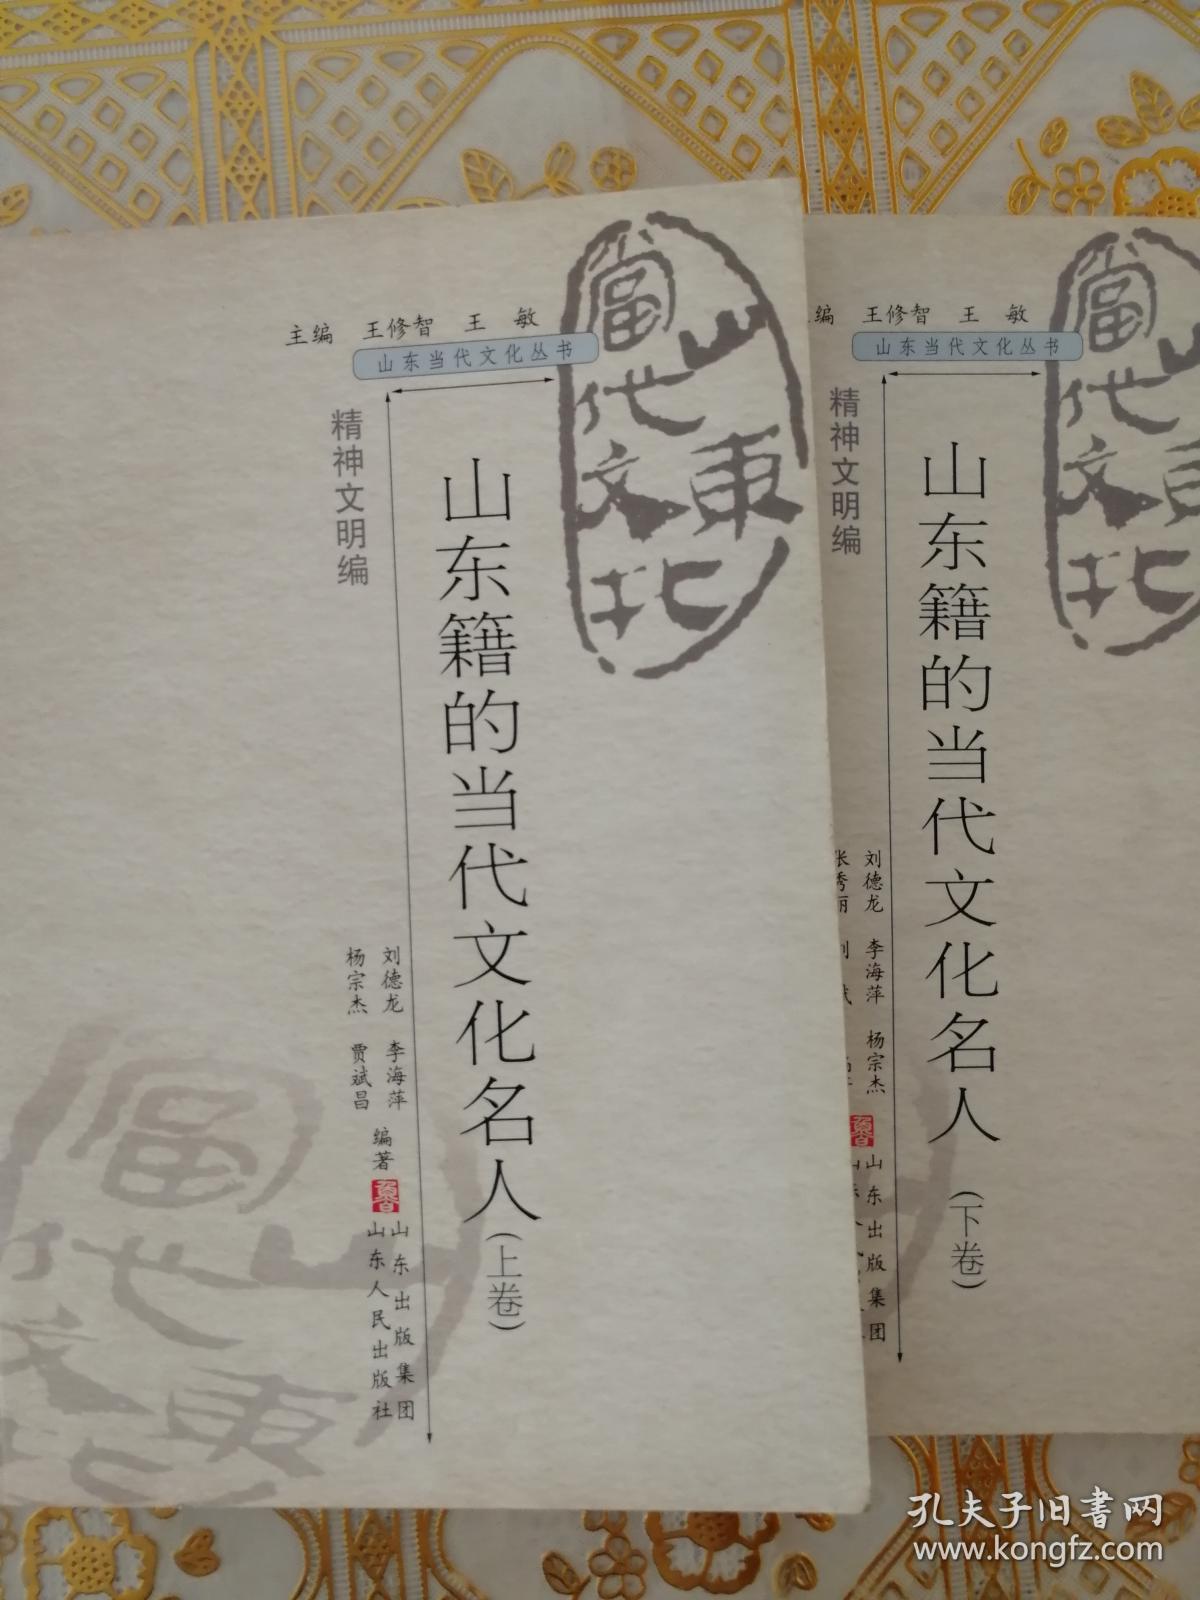 主编 王修智 王 敏
山东当代文化丛书
精神文明编
山东籍的当代文化名人(上卷)
刘德龙 李海萍
杨宗杰 贾斌昌
编著
山东出版集团
山东人民出版社
山东当代文化
编 王修智 王 敏
山东当代文化丛书
精神文明编
山东籍的当代文化名人(下卷)
刘德龙 李海萍 杨宗杰
张秀丽
山东出版集团
孔夫子旧书网
www.kongfz.com